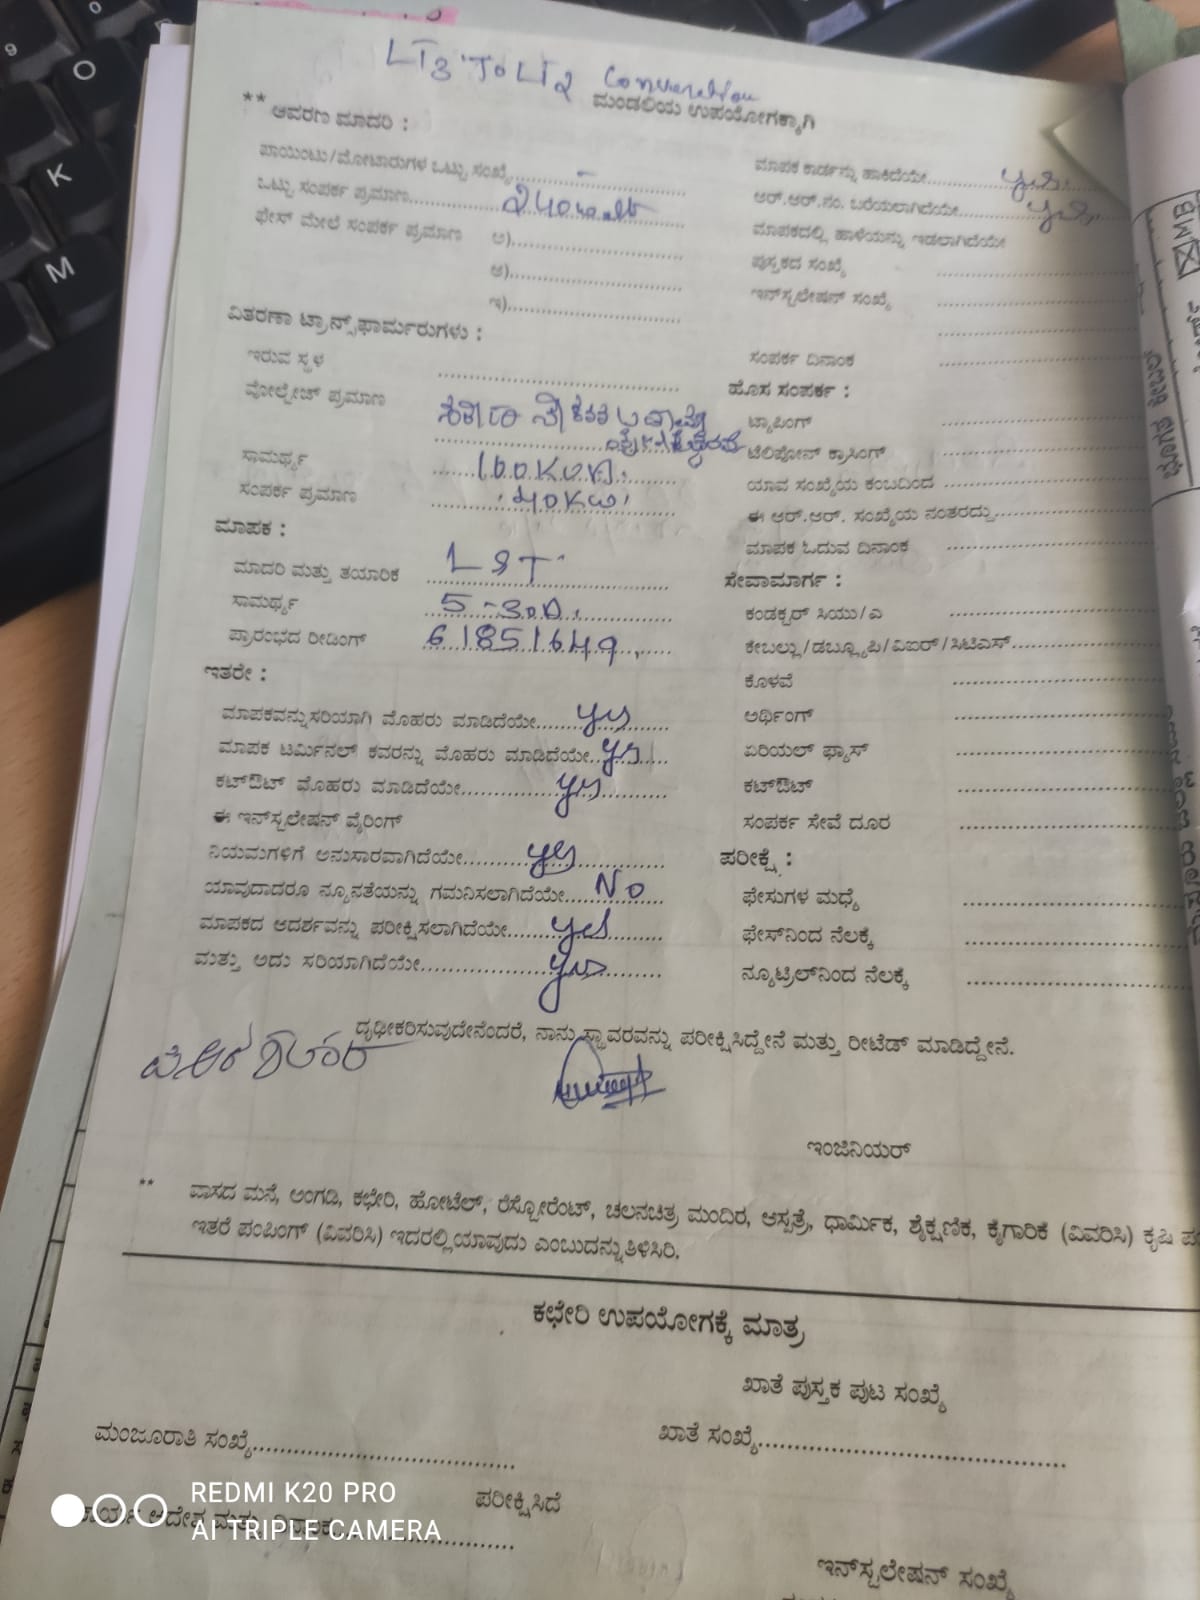 LT3 TO LT2 Conversion
ಮಂಡಲಿಯ ಉಪಯೋಗಕ್ಕಾಗಿ
** ಆವರಣ ಮಾದರಿ :
ಪಾಯಿಂಟು/ಮೋಟಾರುಗಳ ಒಟ್ಟು ಸಂಖ್ಯೆ.......... -
ಒಟ್ಟು ಸಂಪರ್ಕ ಪ್ರಮಾಣ.......... 240
ಫೇಸ್ ಮೇಲೆ ಸಂಪರ್ಕ ಪ್ರಮಾಣ ಅ)..........
ಆ)..........
ಇ)..........
ವಿತರಣಾ ಟ್ರಾನ್ಸ್‌ಫಾರ್ಮರುಗಳು :
ಇರುವ ಸ್ಥಳ ..........
ವೋಲ್ಟೇಜ್ ಪ್ರಮಾಣ ..........
ಸಾಮರ್ಥ್ಯ .......... 100KVA
ಸಂಪರ್ಕ ಪ್ರಮಾಣ .......... 40KW
ಮಾಪಕ :
ಮಾದರಿ ಮತ್ತು ತಯಾರಿಕ .......... L&T
ಸಾಮರ್ಥ್ಯ .......... 5-30A
ಪ್ರಾರಂಭದ ರೀಡಿಂಗ್ .......... 61851649
ಇತರೇ :
ಮಾಪಕವನ್ನು ಸರಿಯಾಗಿ ಮೊಹರು ಮಾಡಿದೆಯೇ...... yes
ಮಾಪಕ ಟರ್ಮಿನಲ್ ಕವರನ್ನು ಮೊಹರು ಮಾಡಿದೆಯೇ.. yes
ಕಟ್‌ಔಟ್ ಮೊಹರು ಮಾಡಿದೆಯೇ.......... yes
ಈ ಇನ್‌ಸ್ಟಲೇಷನ್ ವೈರಿಂಗ್
ನಿಯಮಗಳಿಗೆ ಅನುಸಾರವಾಗಿದೆಯೇ.......... yes
ಯಾವುದಾದರೂ ನ್ಯೂನತೆಯನ್ನು ಗಮನಿಸಲಾಗಿದೆಯೇ.... No
ಮಾಪಕದ ಆದರ್ಶವನ್ನು ಪರೀಕ್ಷಿಸಲಾಗಿದೆಯೇ...... yes
ಮತ್ತು ಅದು ಸರಿಯಾಗಿದೆಯೇ.......... yes
ಮಾಪಕ ಕಾರ್ಡನ್ನು ಹಾಕಿದೆಯೇ.......... yes
ಆರ್.ಆರ್.ನಂ. ಬರೆಯಲಾಗಿದೆಯೇ.......... yes
ಮಾಪಕದಲ್ಲಿ ಹಾಳೆಯನ್ನು ಇಡಲಾಗಿದೆಯೇ
ಪುಸ್ತಕದ ಸಂಖ್ಯೆ ..........
ಇನ್‌ಸ್ಟಲೇಷನ್ ಸಂಖ್ಯೆ ..........
ಸಂಪರ್ಕ ದಿನಾಂಕ ..........
ಹೊಸ ಸಂಪರ್ಕ :
ಟ್ಯಾಪಿಂಗ್ ..........
ಟೆಲಿಪೋನ್ ಕ್ರಾಸಿಂಗ್ ..........
ಯಾವ ಸಂಖ್ಯೆಯ ಕಂಬದಿಂದ ..........
ಈ ಆರ್.ಆರ್. ಸಂಖ್ಯೆಯ ನಂತರದ್ದು..........
ಮಾಪಕ ಓದುವ ದಿನಾಂಕ ..........
ಸೇವಾಮಾರ್ಗ :
ಕಂಡಕ್ಟರ್ ಸಿಯು/ಎ ..........
ಕೇಬಲ್ಲು/ಡಬ್ಲ್ಯೂಪಿ/ವಿಐರ್/ಸಿಟಿಎಸ್..........
ಕೊಳವೆ ..........
ಅರ್ಥಿಂಗ್ ..........
ಏರಿಯಲ್ ಫ್ಯಾಸ್ ..........
ಕಟ್‌ಔಟ್ ..........
ಸಂಪರ್ಕ ಸೇವೆ ದೂರ ..........
ಪರೀಕ್ಷೆ :
ಫೇಸುಗಳ ಮಧ್ಯೆ ..........
ಫೇಸ್‌ನಿಂದ ನೆಲಕ್ಕೆ ..........
ನ್ಯೂಟ್ರಿಲ್‌ನಿಂದ ನೆಲಕ್ಕೆ ..........
ದೃಢೀಕರಿಸುವುದೇನೆಂದರೆ, ನಾನು ಸ್ಥಾವರವನ್ನು ಪರೀಕ್ಷಿಸಿದ್ದೇನೆ ಮತ್ತು ರೀಟೆಡ್ ಮಾಡಿದ್ದೇನೆ.
ಇಂಜಿನಿಯರ್
** ವಾಸದ ಮನೆ, ಅಂಗಡಿ, ಕಛೇರಿ, ಹೋಟೆಲ್, ರೆಸ್ಟೋರೆಂಟ್, ಚಲನಚಿತ್ರ ಮಂದಿರ, ಆಸ್ಪತ್ರೆ, ಧಾರ್ಮಿಕ, ಶೈಕ್ಷಣಿಕ, ಕೈಗಾರಿಕೆ (ವಿವರಿಸಿ) ಕೃಷಿ
ಇತರೆ ಪಂಪಿಂಗ್ (ವಿವರಿಸಿ) ಇದರಲ್ಲಿ ಯಾವುದು ಎಂಬುದನ್ನು ತಿಳಿಸಿರಿ.
ಕಛೇರಿ ಉಪಯೋಗಕ್ಕೆ ಮಾತ್ರ
ಖಾತೆ ಪುಸ್ತಕ ಪುಟ ಸಂಖ್ಯೆ
ಮಂಜೂರಾತಿ ಸಂಖ್ಯೆ.......... ಖಾತೆ ಸಂಖ್ಯೆ..........
ಪರೀಕ್ಷಿಸಿದೆ
ಇನ್‌ಸ್ಟಲೇಷನ್ ಸಂಖ್ಯೆ
REDMI K20 PRO
AI TRIPLE CAMERA